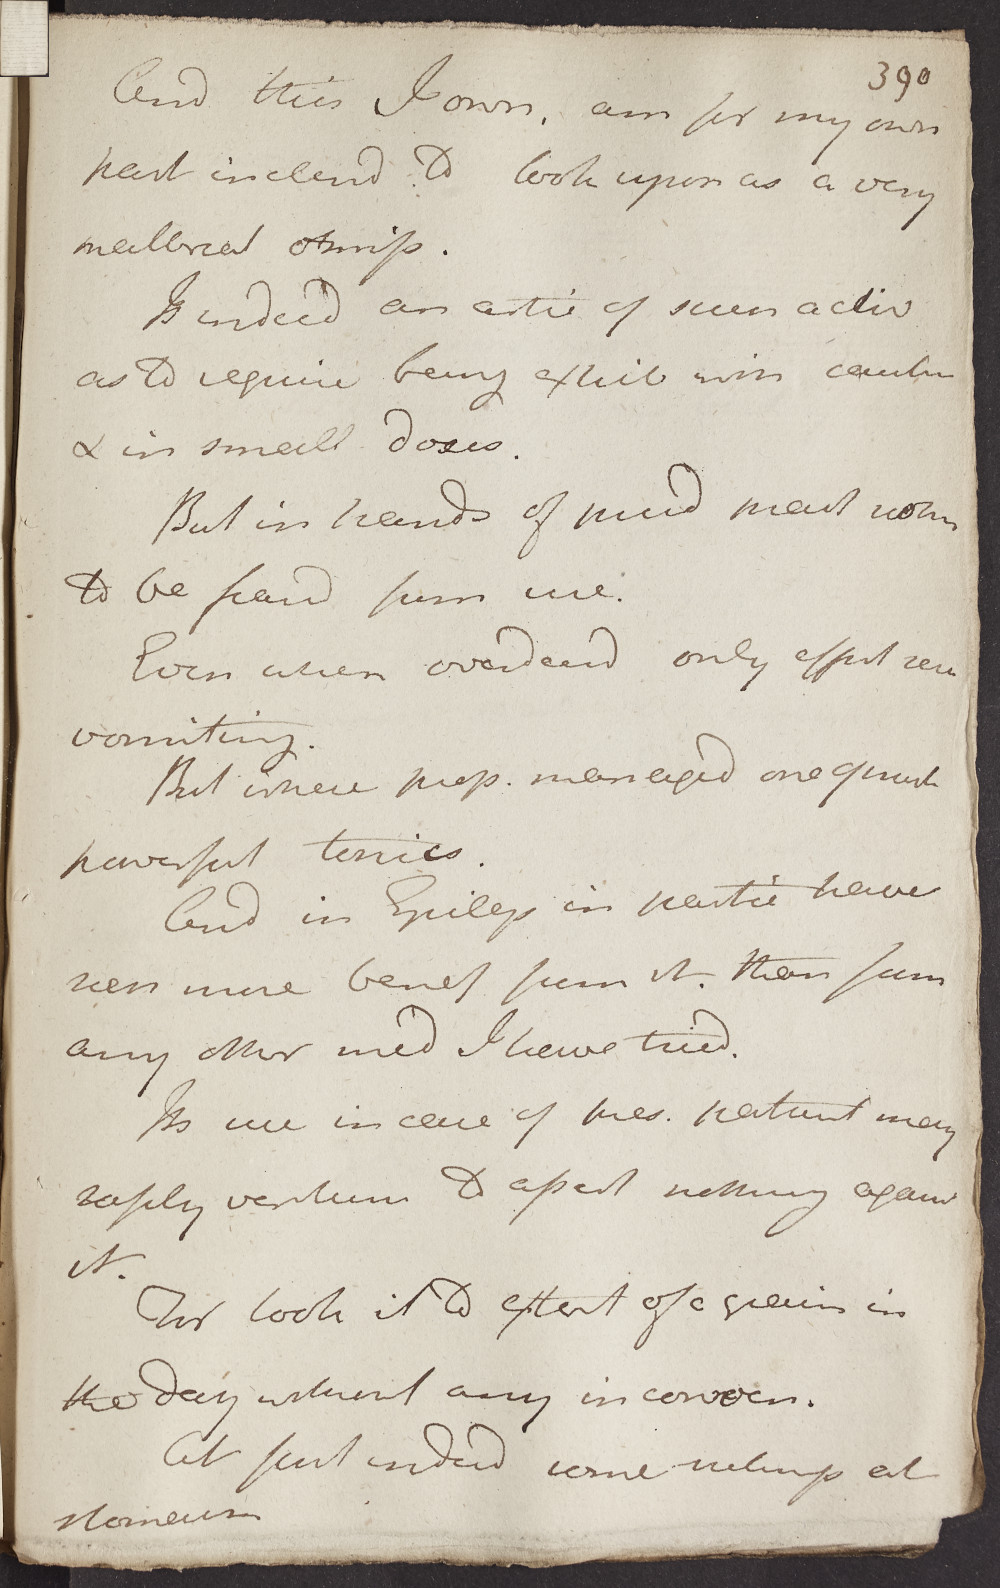 390
And this I own, am for my own
part inclend to look upon as a very
matereal omiss.
Is indeed an artic of such activ
as to require being exhib with cautn
& in small doses.
But in hands of prud pract nothn
to be feard from use.
Even when overdosed only effect
vomiting.
But where prop. managed one of most
powerful tonics.
And in Epileps in partic have
seen more benef from it. than from
any other med I have tried.
Its use in case of pres. patient may
safely venture to assert nothing again
it.
For took it to extent of a grain in
the day without any inconven.
At first indeed some at
stomach